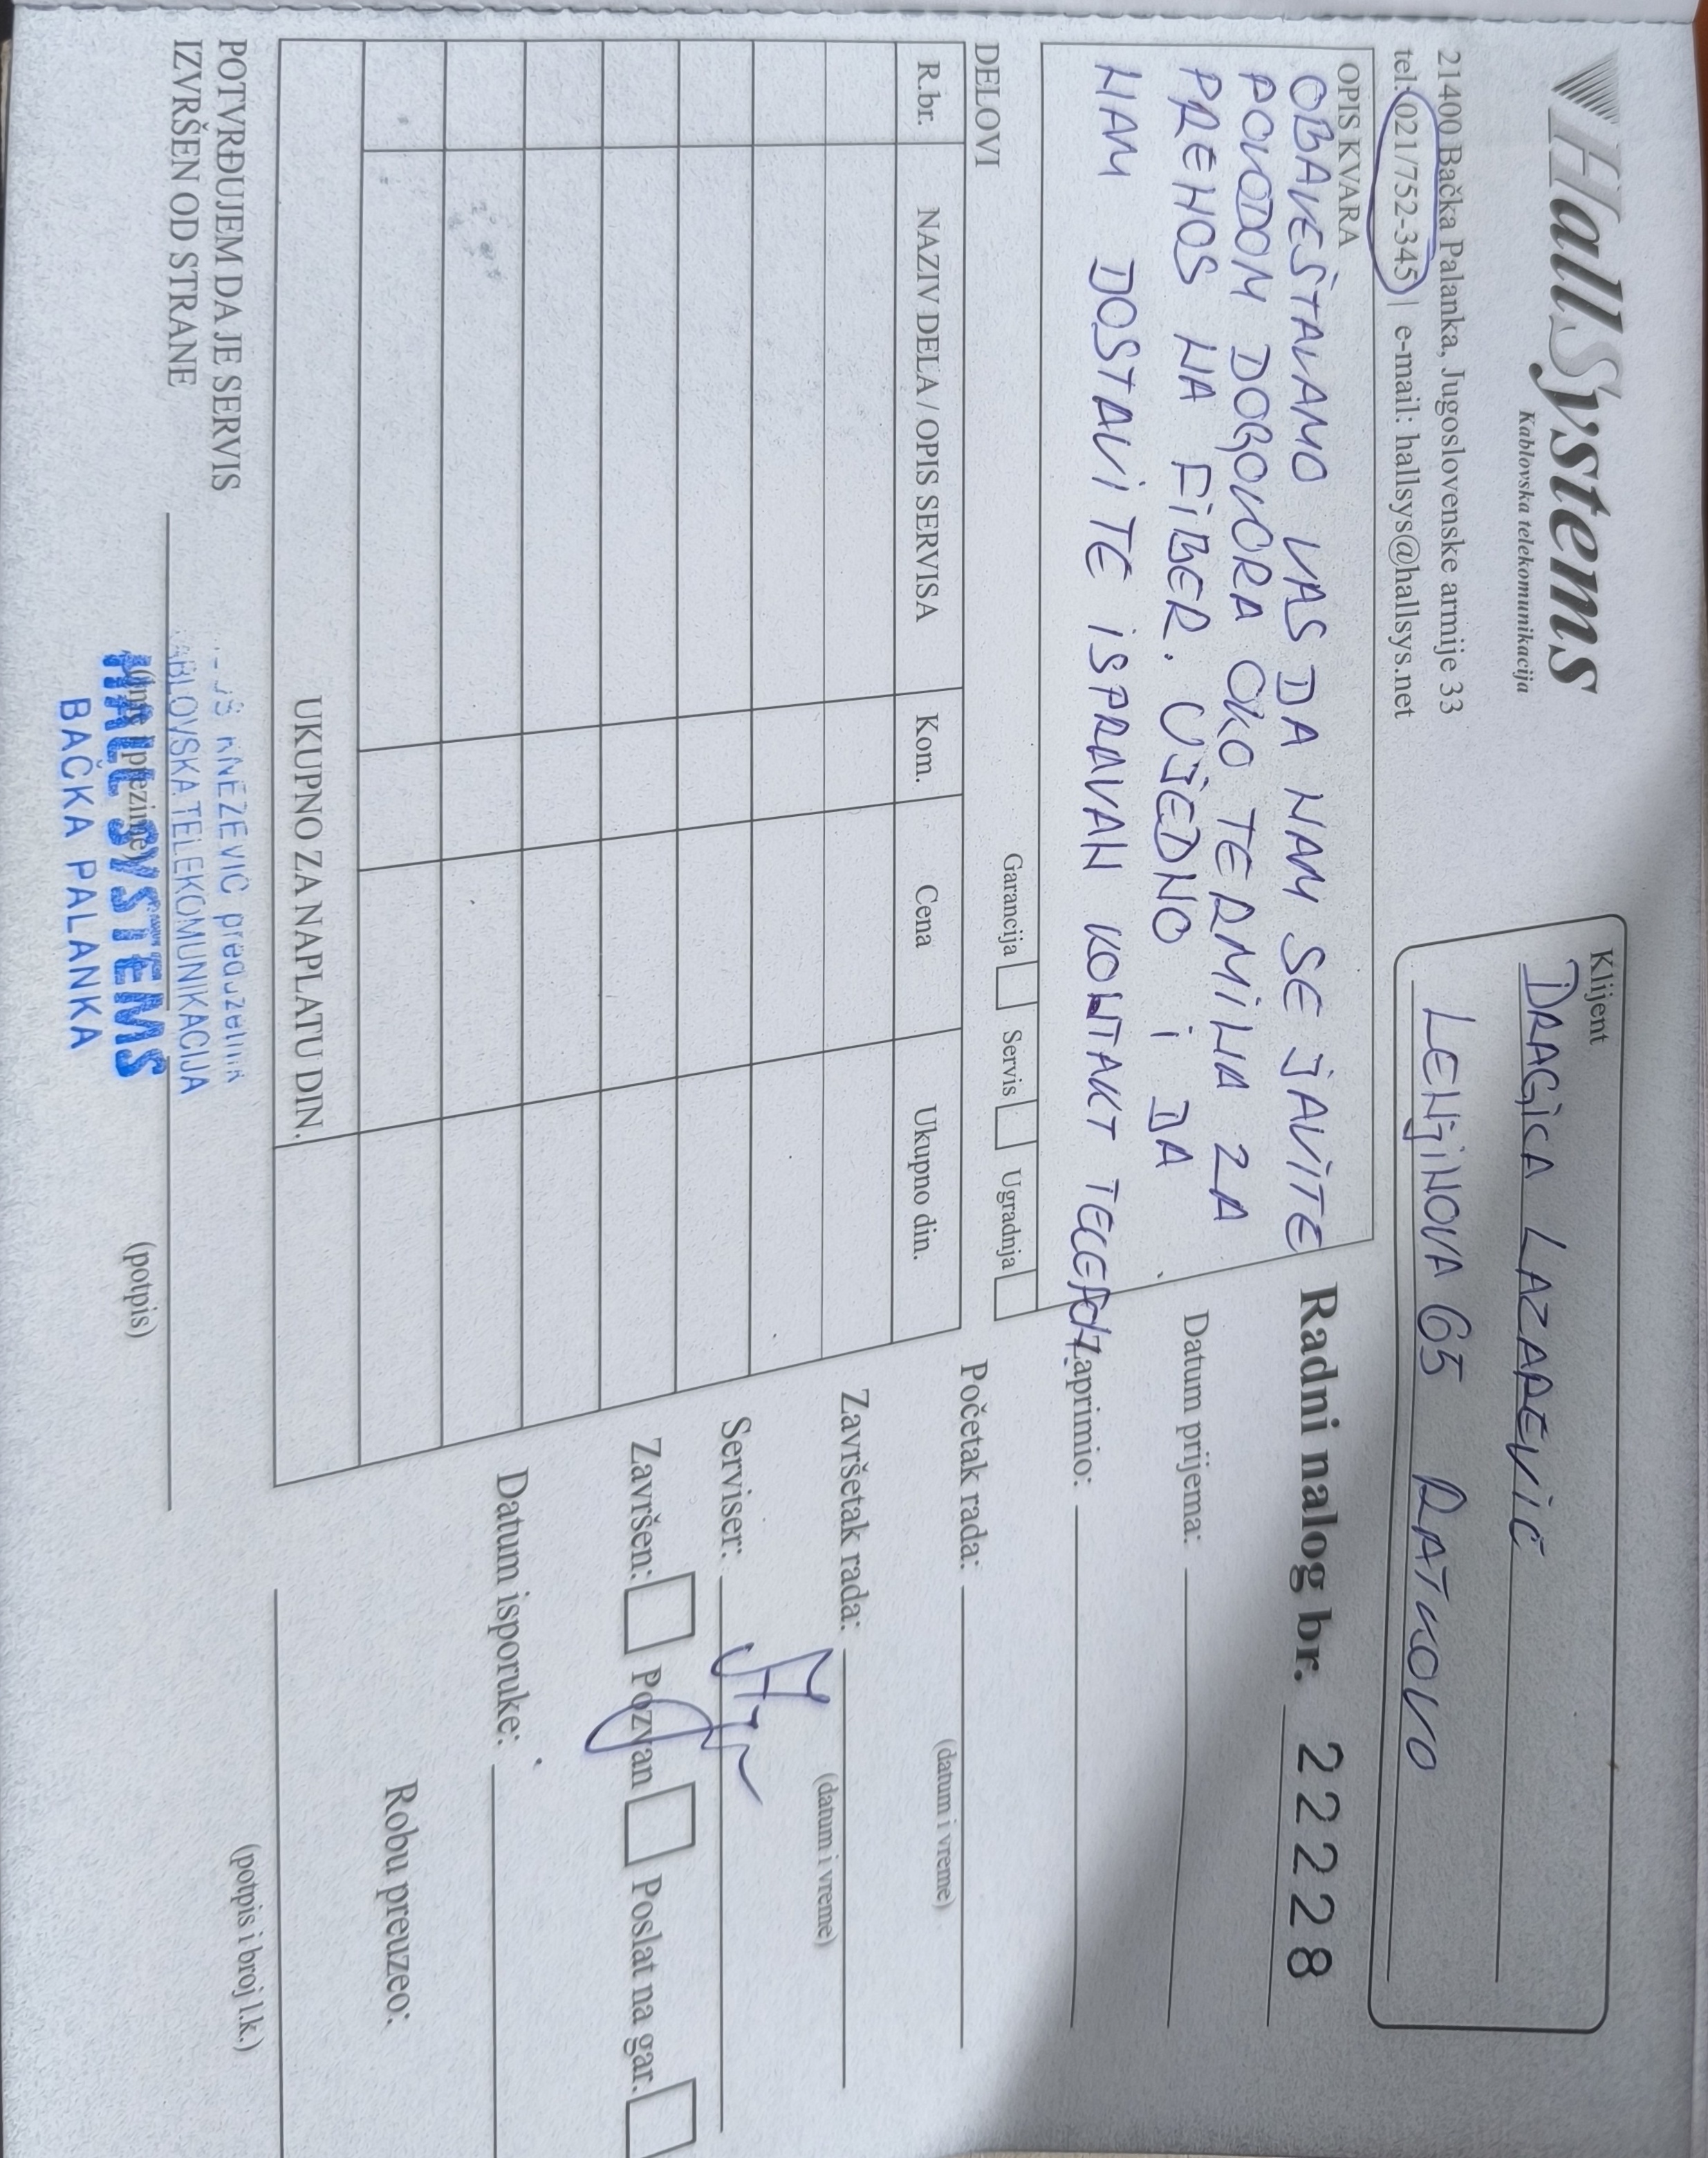 HallSystems
Kablovska telekomunikacija
21400 Bačka Palanka, Jugoslovenske armije 33
tel: 021/752-345 | e-mail: hallsys@hallsys.net
Klijent
DRAGICA LAZAREVIĆ
LENJINOVA 65 RATKOVO
OPIS KVARA
OBAVEŠTAVAMO VAS DA NAM SE JAVITE
POVODOM DOGOVORA OKO TERMINA ZA
PRENOS NA FIBER. UJEDNO I DA
NAM DOSTAVITE ISPRAVAN KONTAKT TELEFON
Radni nalog br. 22228
Datum prijema:
Zaprimio:
Garancija Servis Ugradnja
DELOVI
R.br. NAZIV DELA / OPIS SERVISA Kom. Cena Ukupno din.
UKUPNO ZA NAPLATU DIN.
Početak rada:
(datum i vreme)
Završetak rada:
(datum i vreme)
Serviser:
Završen: Pozvan Poslat na gar.
Datum isporuke:
Robu preuzeo:
(potpis i broj l.k.)
POTVRĐUJEM DA JE SERVIS
IZVRŠEN OD STRANE
(ime i prezime)
(potpis)
KNEŽEVIĆ preduzetnik
KABLOVSKA TELEKOMUNIKACIJA
HALL SYSTEMS
BAČKA PALANKA